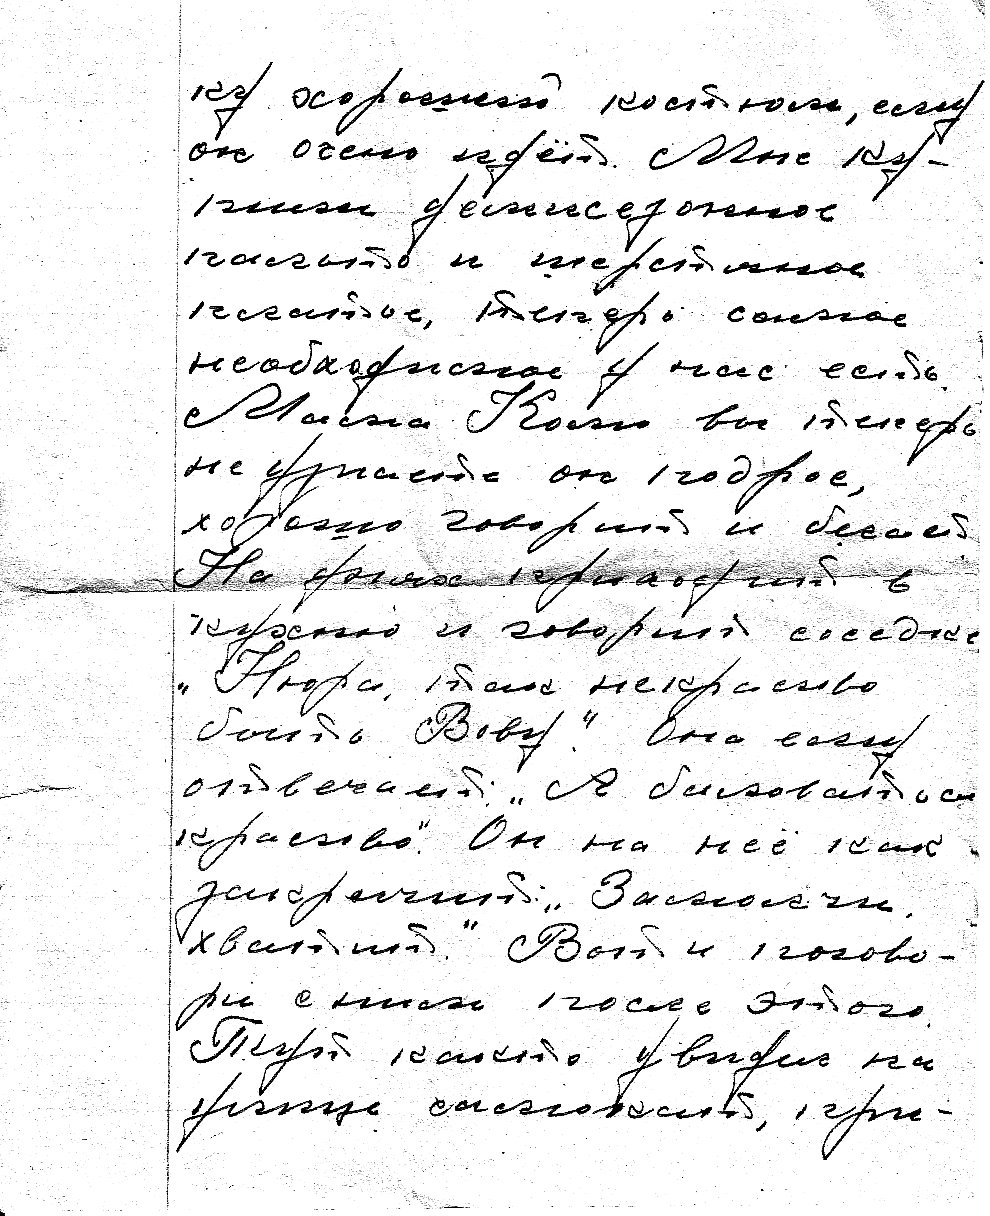 ку хороший костюм, ему
он очень идёт. Мне ку-
пили демисезонное
пальто и шерстяное
платье, теперь самое
необходимое у нас есть.
Мама Колю вы теперь
не узнаете он подрос,
хорошо говорит и бегает
На днях приходит в
кухню и говорит соседке
„Нюра, так некрасиво
бить Вову." Она ему
отвечает: „А баловаться
красиво". Он на неё как
закричит: „Замолчи,
хватит." Вот и погово-
ри с ним после этого.
Тут както увидел на
улице самокат, при-